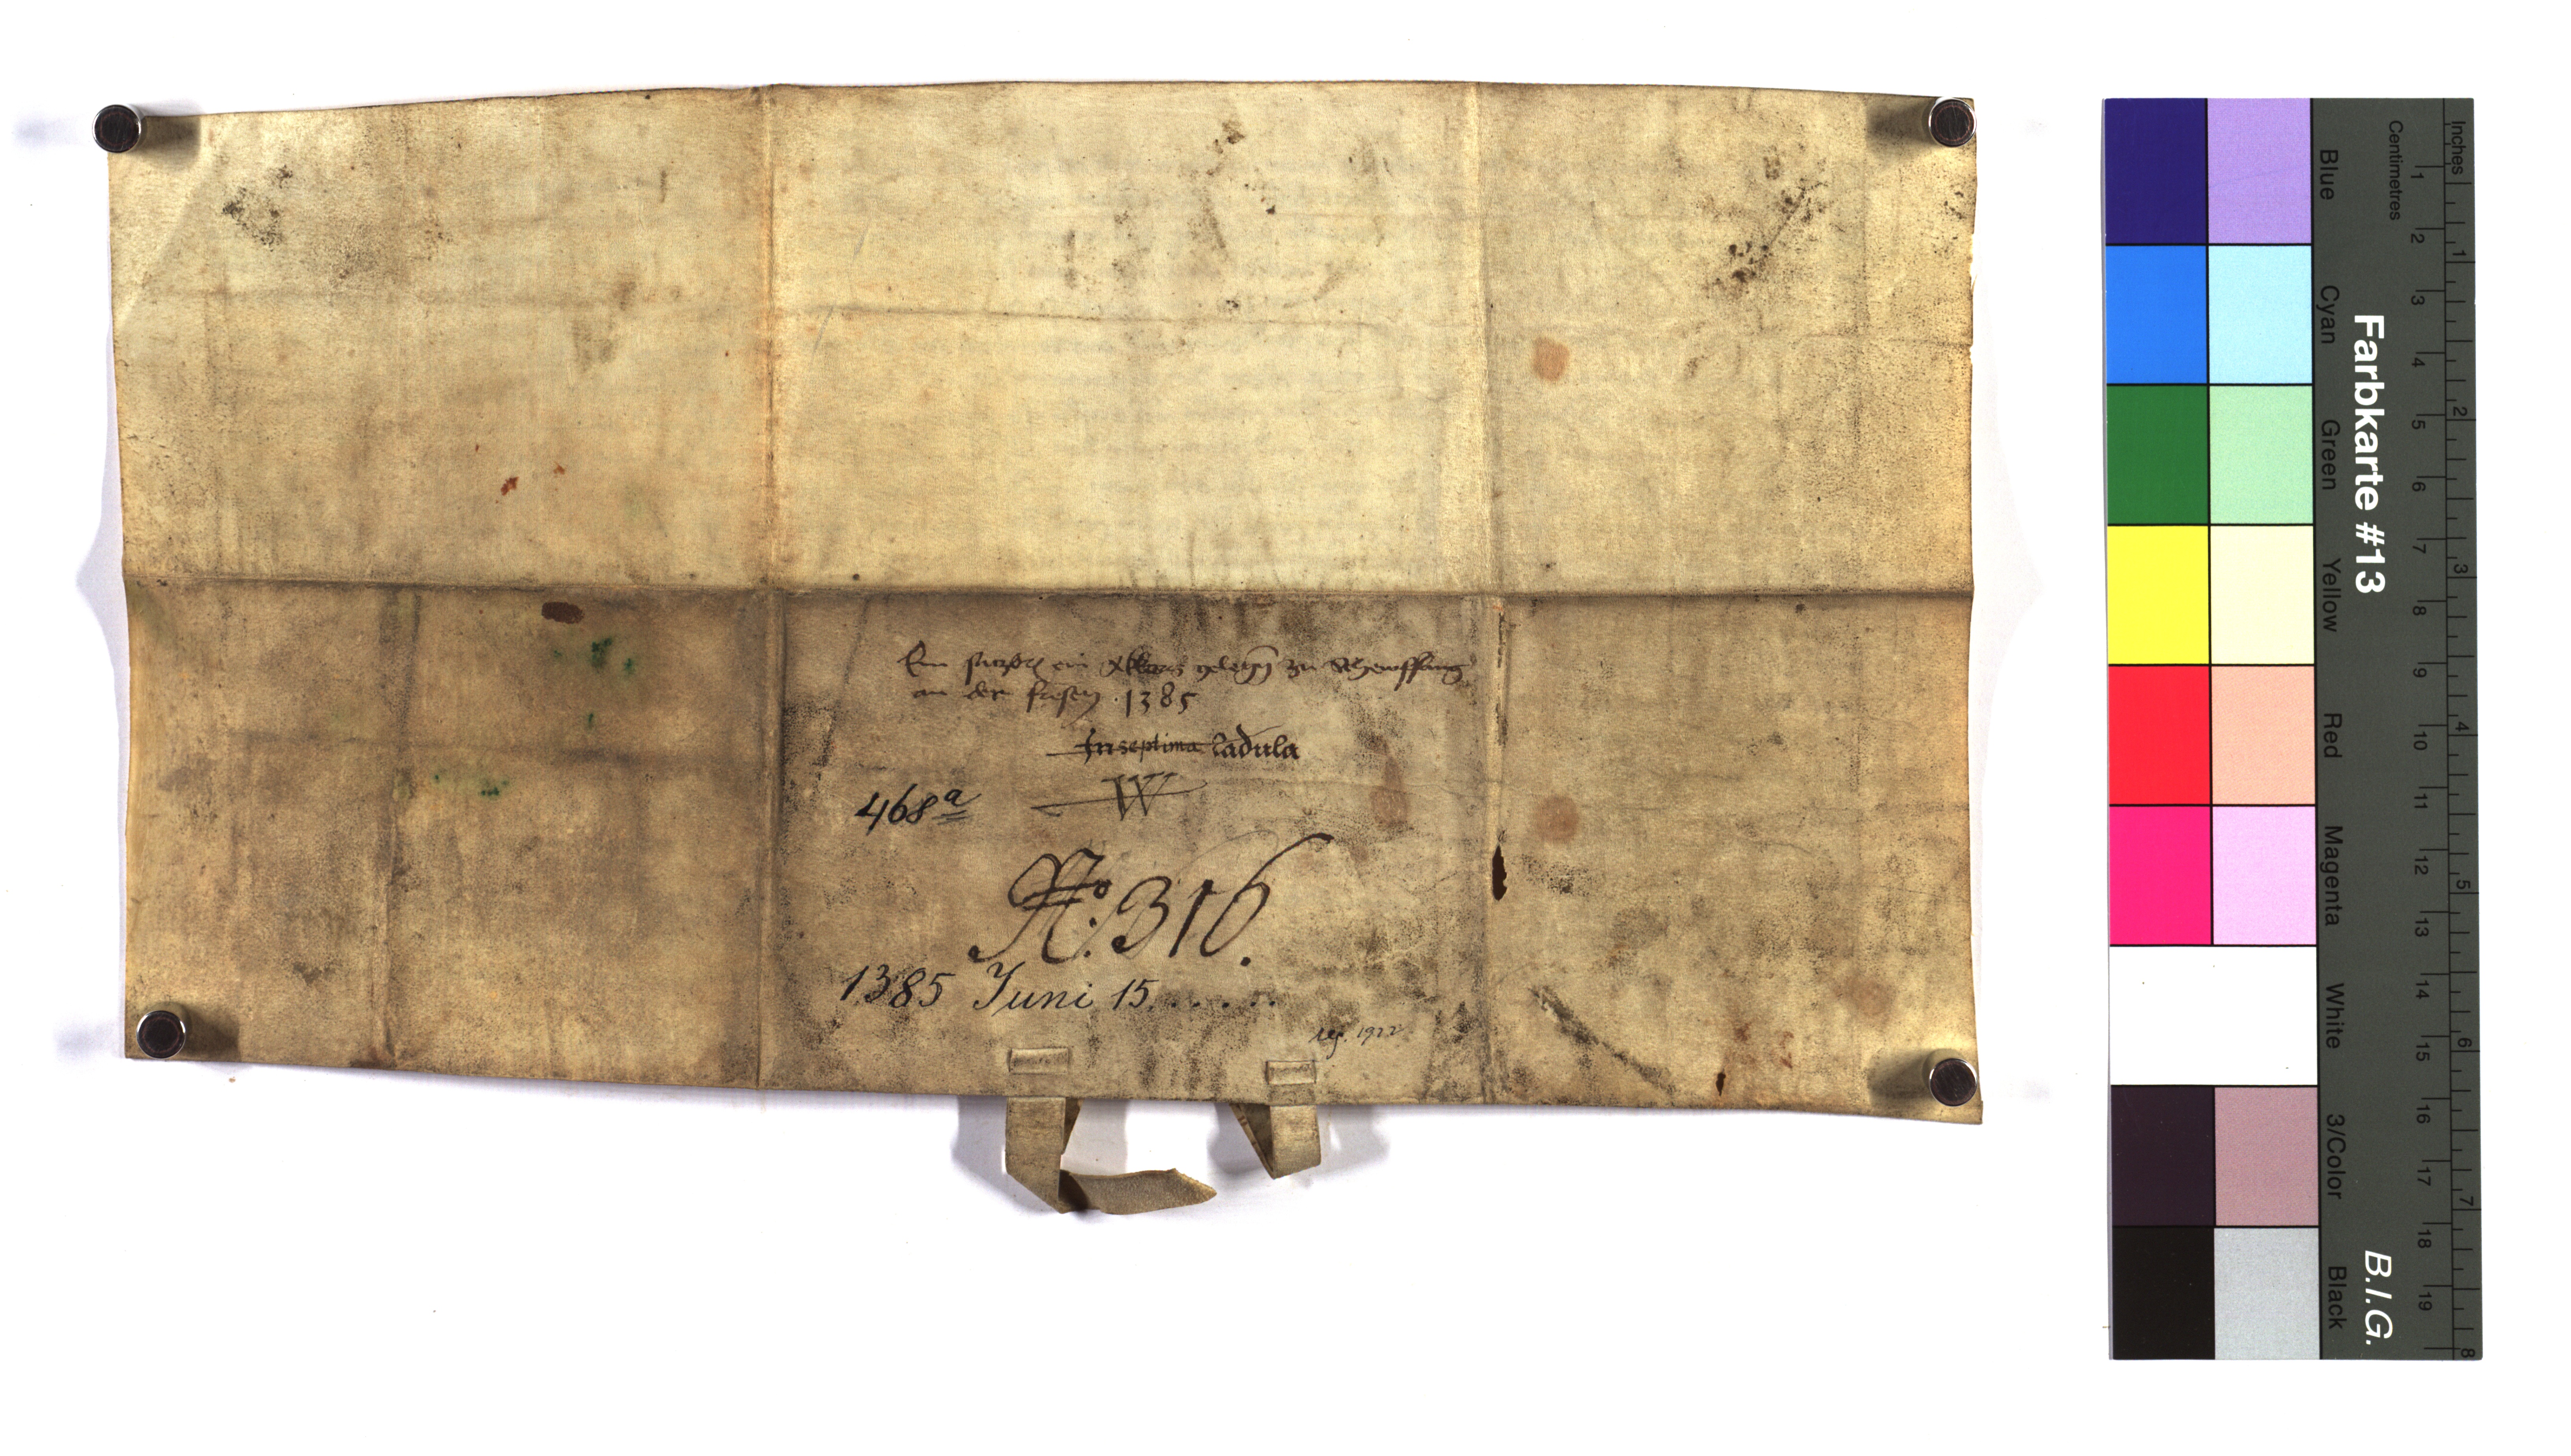 Ein ein gelegen zu
an der 1385
In septima ladula
W
468a
No. 316.
1385 Juni 15......
reg. 1922
Inches
Centimetres
1 2 3 4 5 6 7 8 9 10 11 12 13 14 15 16 17 18 19
1 2 3 4 5 6 7 8
Farbkarte #13
B.I.G.
Blue
Cyan
Green
Yellow
Red
Magenta
White
3/Color
Black